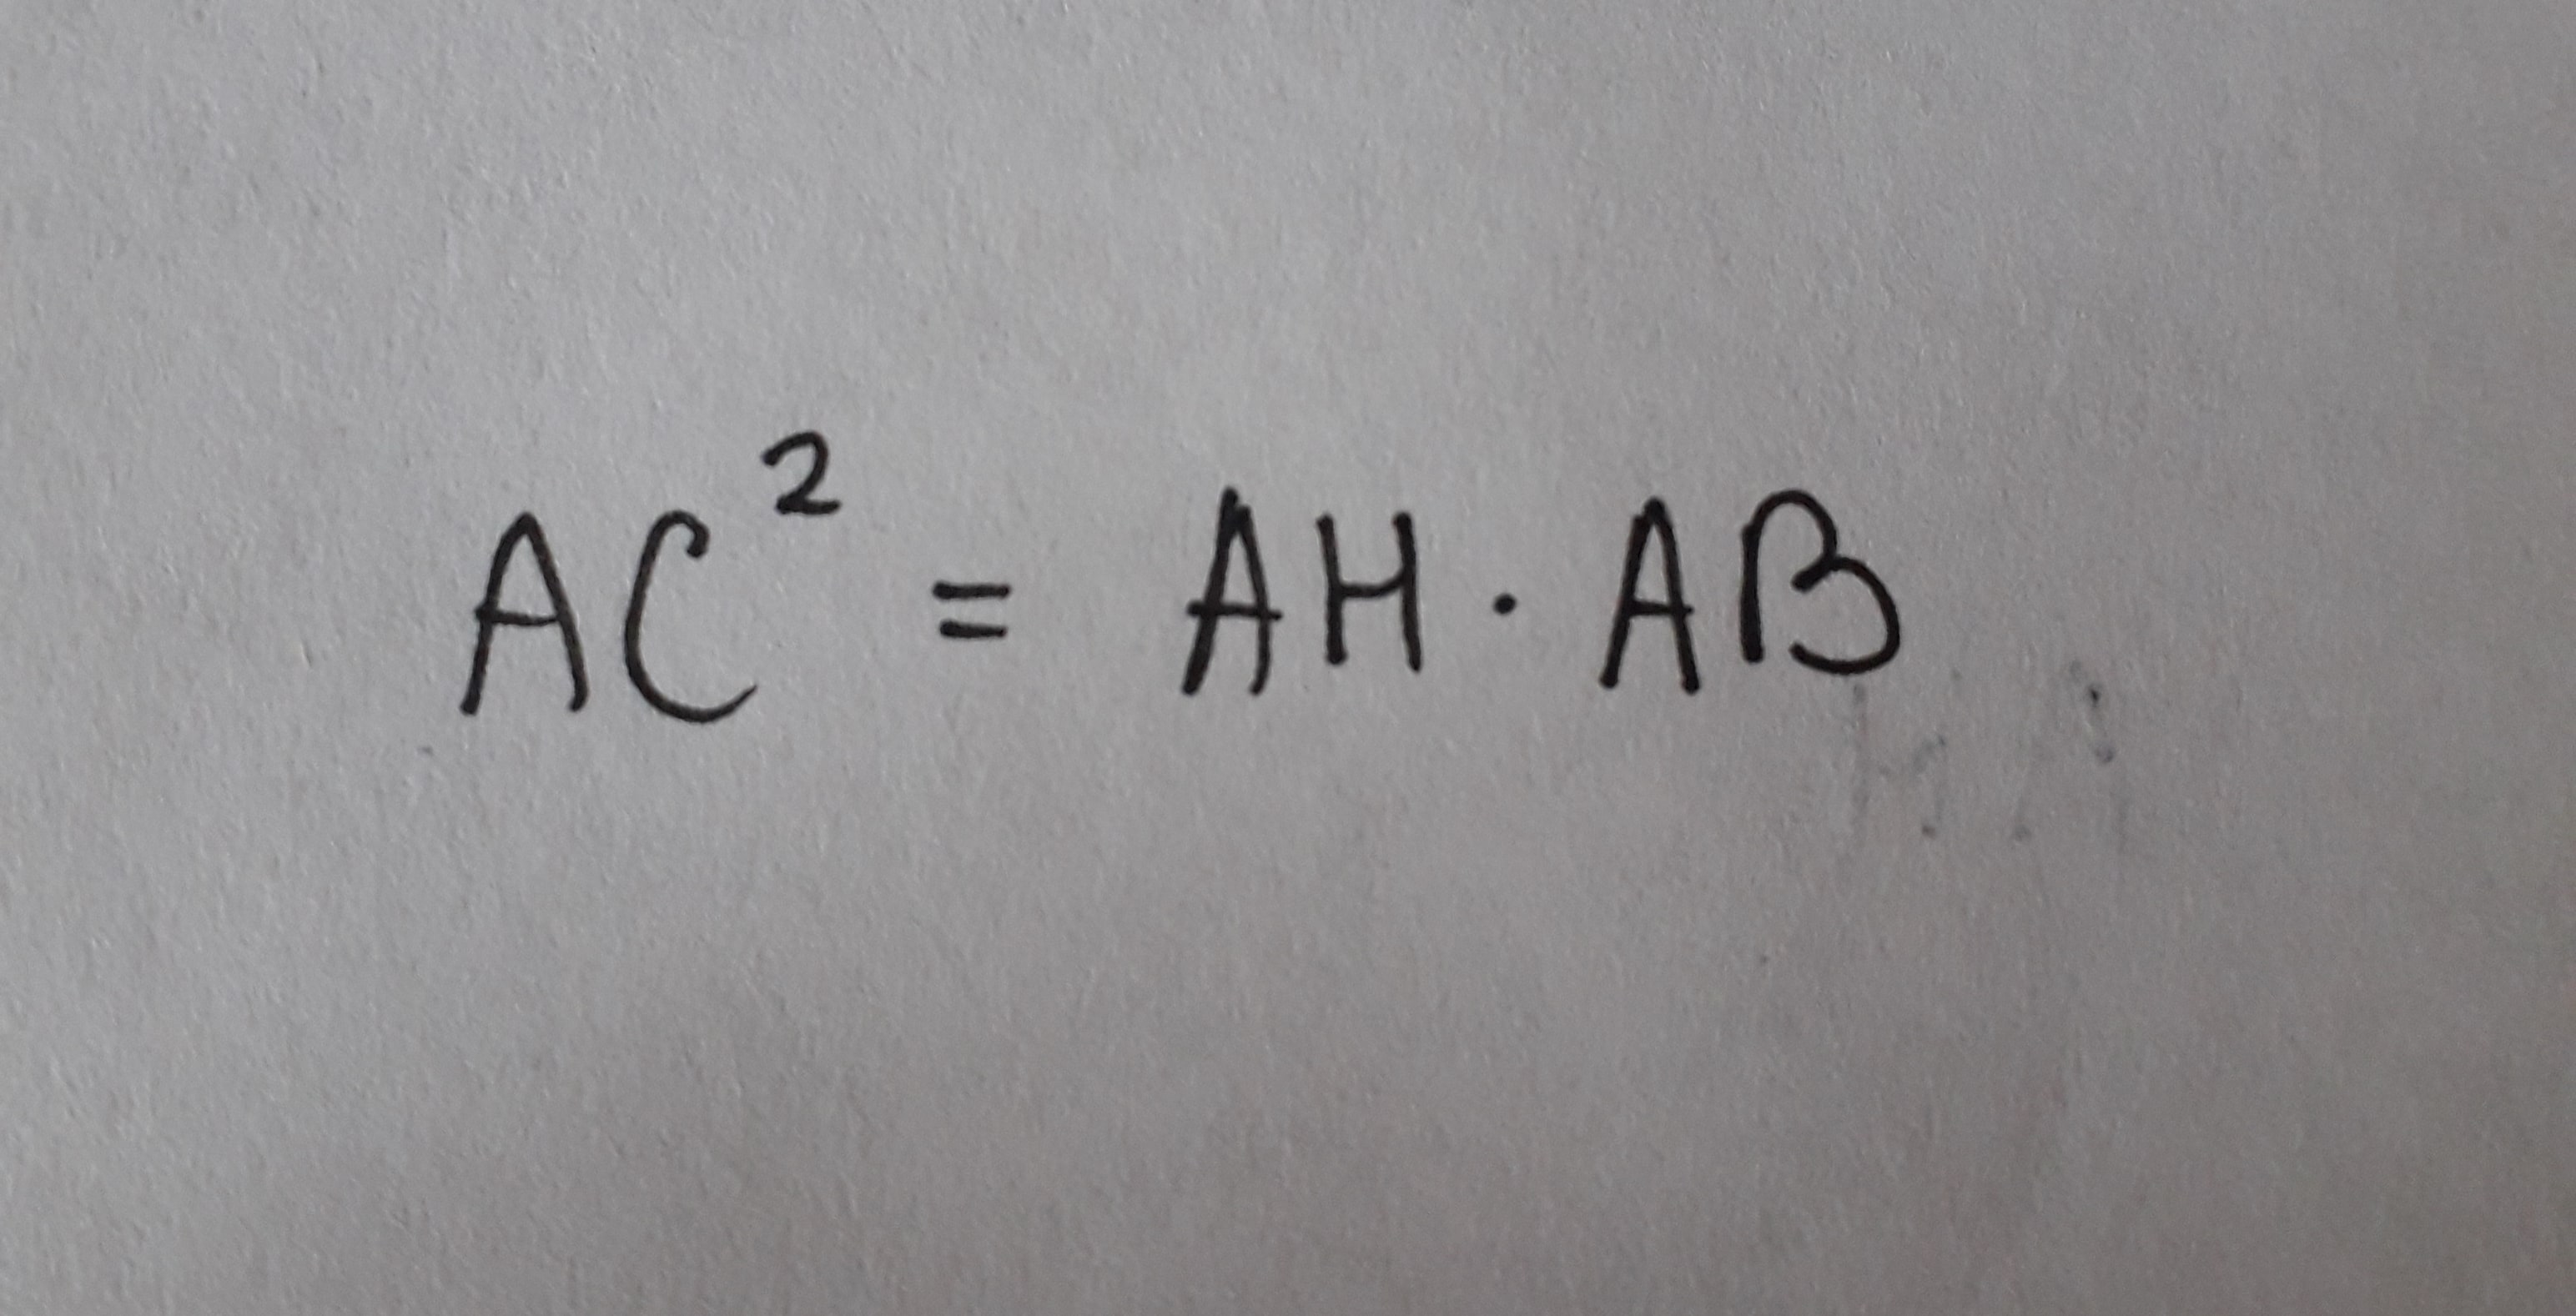 AC² = AH · AB